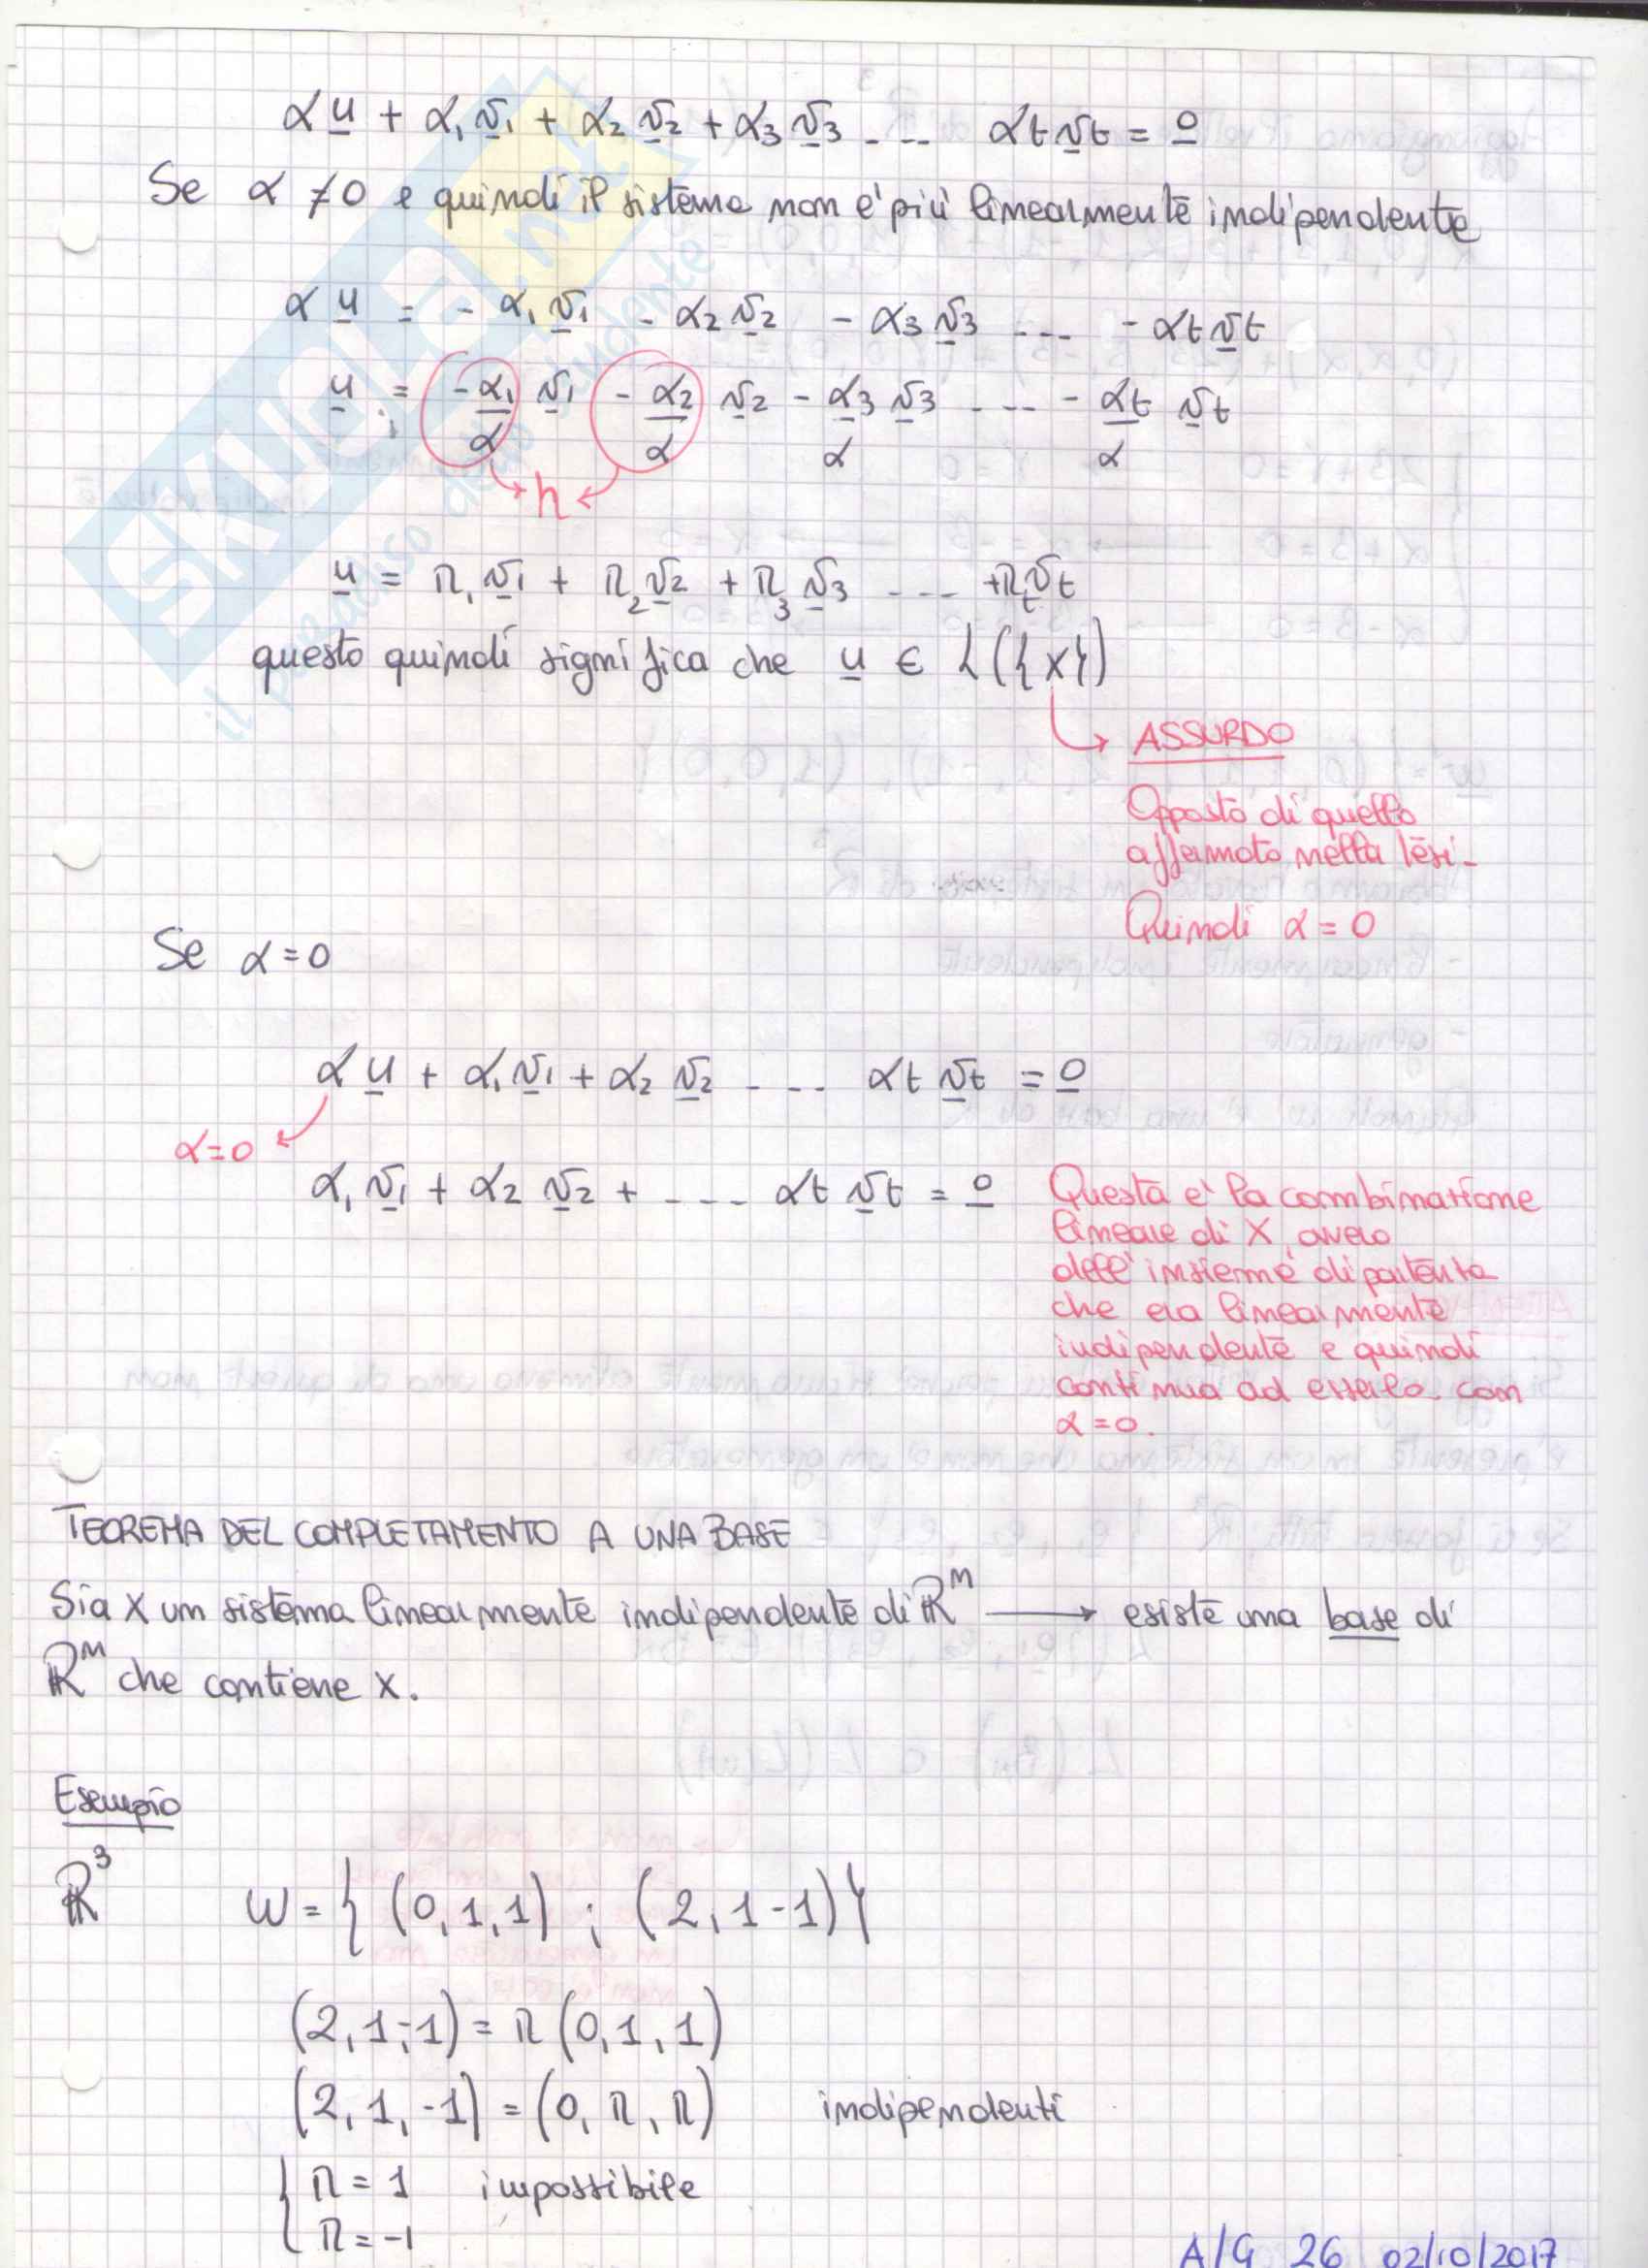 α u + α₁ v₁ + α₂ v₂ + α₃ v₃ - -- αt vt = 0
Se α ≠ 0 e quindi il sistema non e' più linearmente indipendente
α u = - α₁ v₁ - α₂ v₂ - α₃ v₃ --- - αt vt
u = -α₁/α v₁ - α₂/α v₂ - α₃/α v₃ - -- - αt/α vt
h
u = h₁ v₁ + h₂ v₂ + h₃ v₃ - -- + ht vt
questo quindi significa che u ∈ L({x})
ASSURDO
Opposto di quello
affermato nella tesi-
Quindi α = 0
Se α = 0
α u + α₁ v₁ + α₂ v₂ - -- αt vt = 0
α=0
α₁ v₁ + α₂ v₂ + - -- αt vt = 0
Questa e' la combinazione
lineare di X, ovvero
dell'insieme di partenza
che era linearmente
indipendente e quindi
continua ad esserlo con
α=0.
TEOREMA DEL COMPLETAMENTO A UNA BASE
Sia X un sistema linearmente indipendente di ℝᵐ → esiste una base di
ℝᵐ che contiene x.
Esempio
ℝ³ W = { (0,1,1) ; (2,1-1) }
(2,1,-1) = h (0,1,1)
(2,1,-1) = (0, h, h) indipendenti
{ h = 1 impossibile
h = -1
A/G 26 02/10/2017
SKUOLA.net
il paradiso dello studente